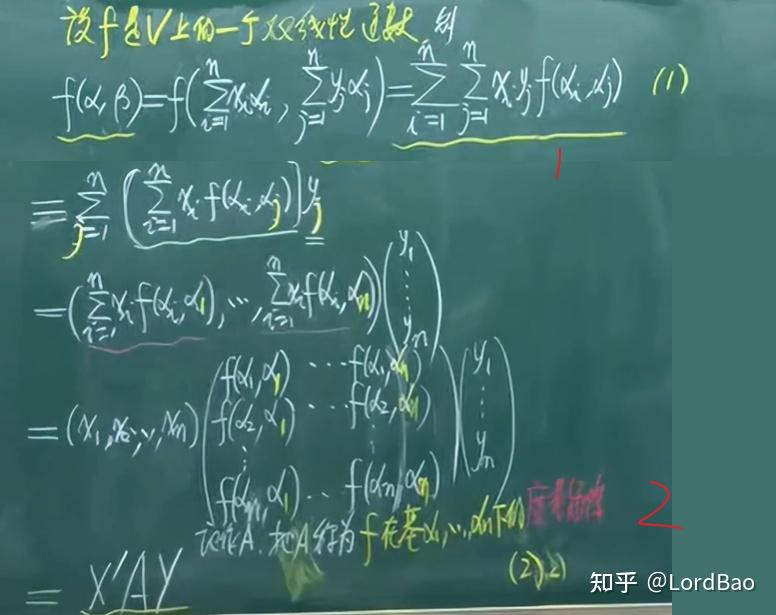 设f是V上的一个双线性函数 则
f(α,β)=f(∑_{i=1}^{n} x_iα_i, ∑_{j=1}^{n} y_jα_j)=∑_{i=1}^{n} ∑_{j=1}^{n} x_i y_j f(α_i,α_j) (1)
1
=∑_{j=1}^{n} (∑_{i=1}^{n} x_i f(α_i,α_j)) y_j
=(∑_{i=1}^{n} x_i f(α_i,α_1), ⋯, ∑_{i=1}^{n} x_i f(α_i,α_n)) (y_1 ⋮ y_n)
=(x_1,x_2,⋯,x_n) (f(α_1,α_1) ⋯ f(α_1,α_n) f(α_2,α_1) ⋯ f(α_2,α_n) ⋮ ⋮ f(α_n,α_1) ⋯ f(α_n,α_n)) (y_1 ⋮ y_n)
记作A, 把A称为f在基α_1,⋯,α_n下的度量矩阵 2
=X'AY (2)
知乎 @LordBao